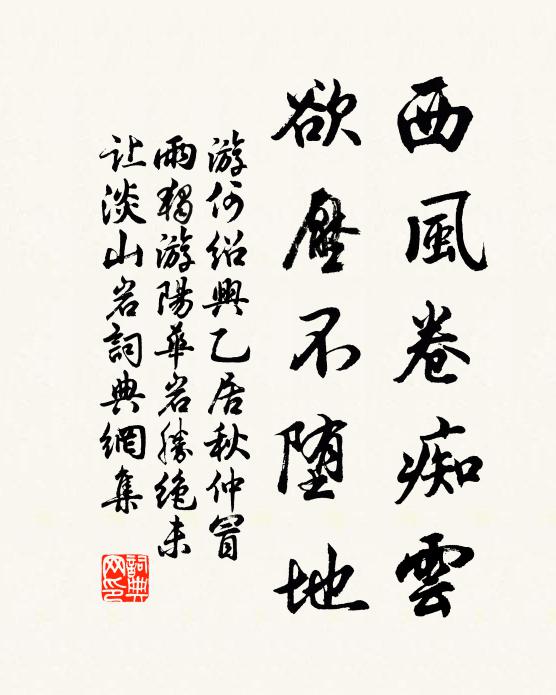 西風卷痴雲
欲壓不墮地
游何紹興乙居秋仲冒
雨獨游陽華岩勝絶未
让淡山岩詞典網集
詞典网印